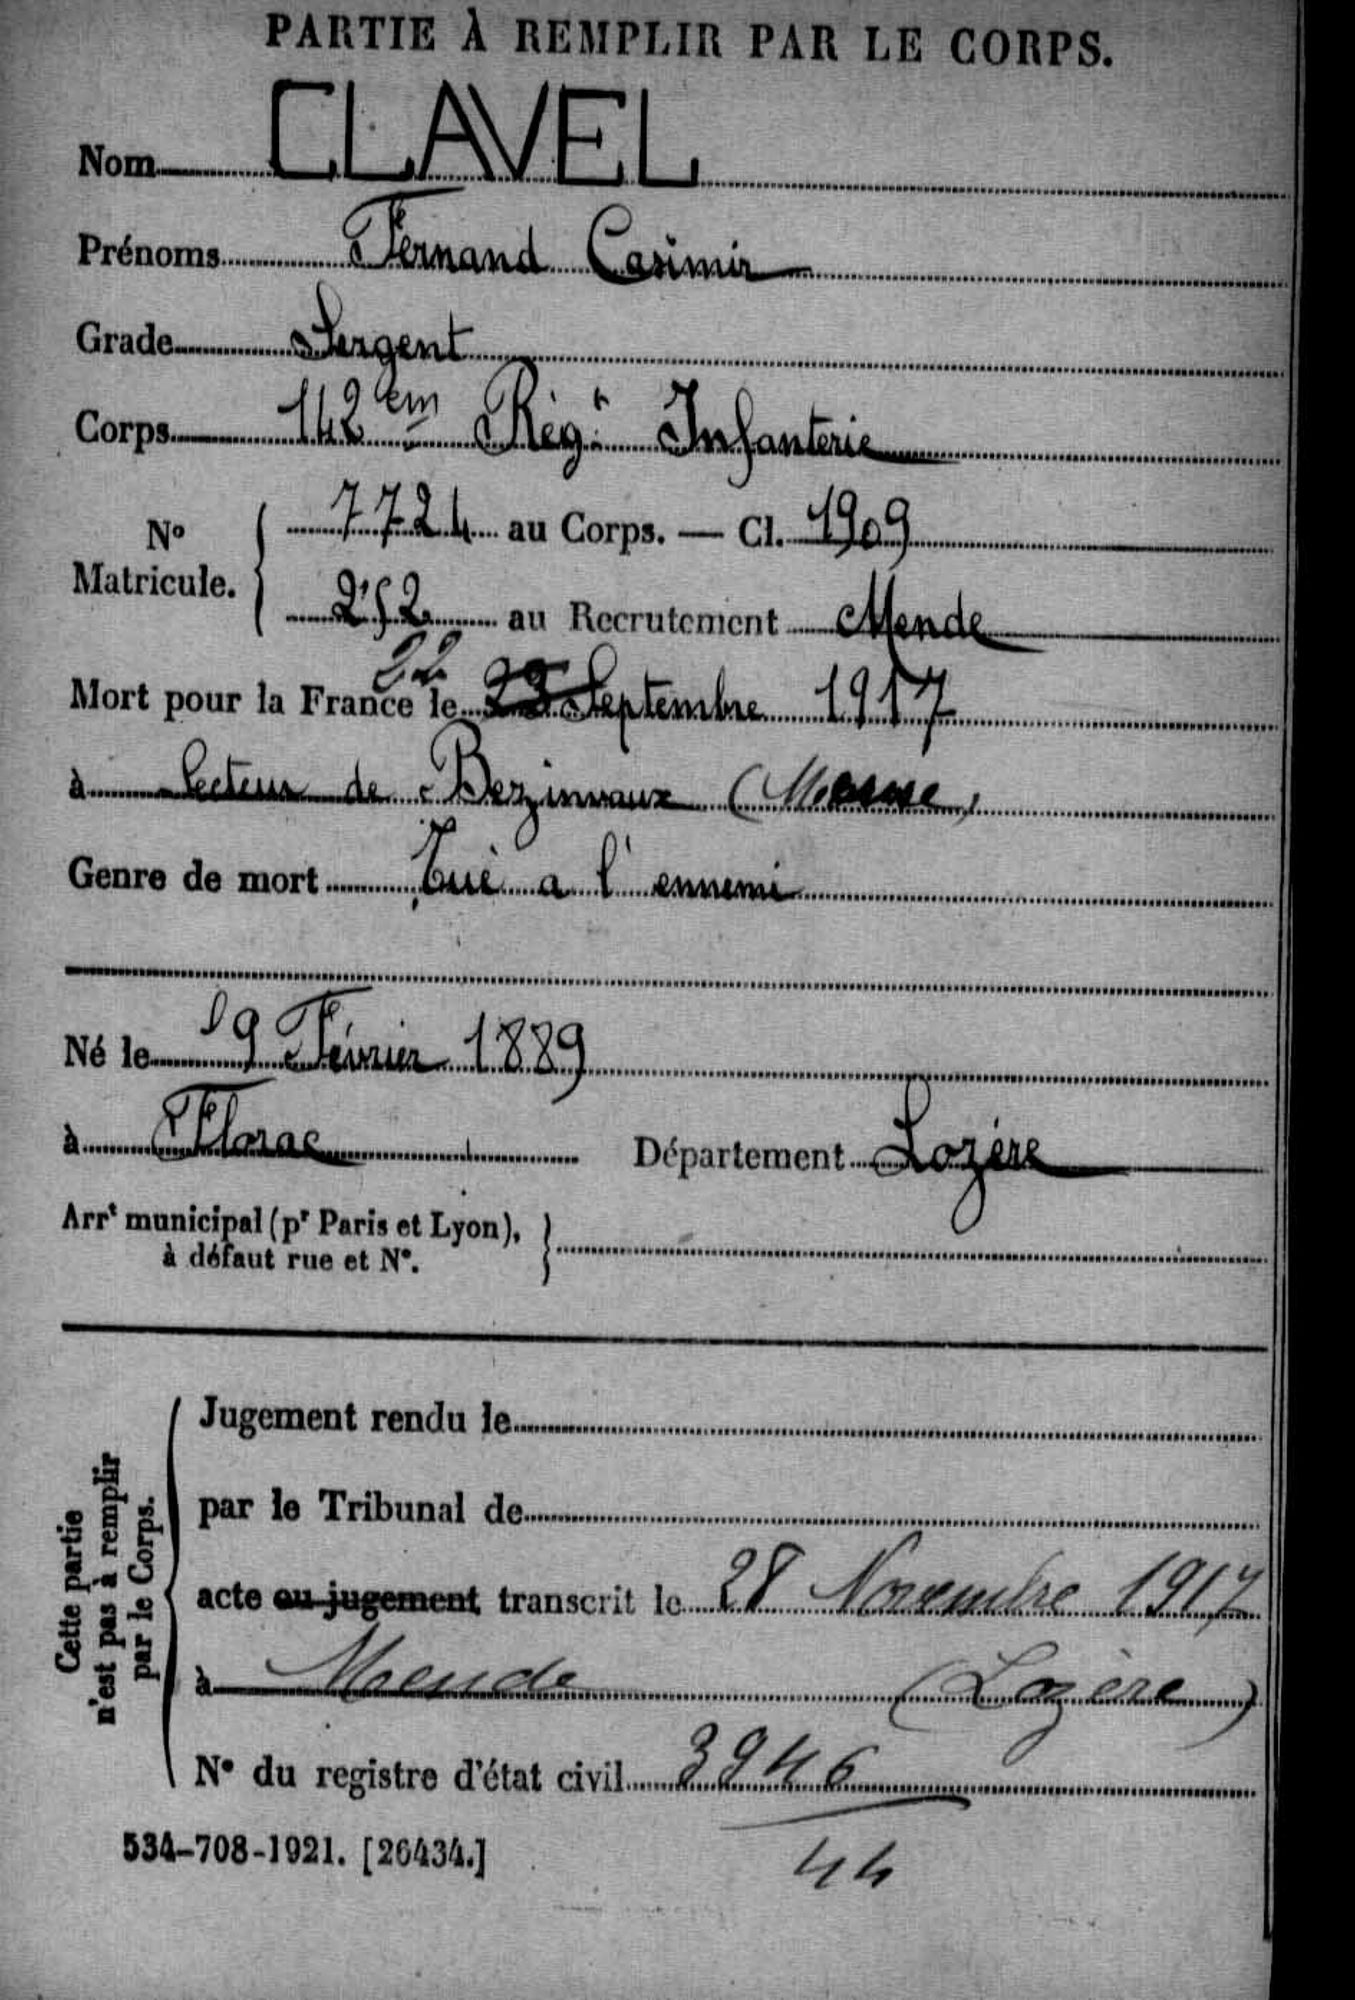 PARTIE À REMPLIR PAR LE CORPS.
Nom CLAVEL
Prénoms Fernand Casimir
Grade Sergent
Corps 142 em Régt Infanterie
No Matricule. { 7724 au Corps. — Cl. 1909
252 au Recrutement Mende
22
Mort pour la France le 23 Septembre 1917
à Secteur de Bezinvaux (Meuse)
Genre de mort Tué a l'ennemi
Né le 19 Février 1889
à Florac Département Lozère
Arrt municipal (pr Paris et Lyon), }
à défaut rue et N°.
Cette partie
n'est pas à remplir
par le Corps.
Jugement rendu le
par le Tribunal de
acte ou jugement transcrit le 28 Novembre 1917
à Mende (Lozère)
N° du registre d'état civil 3946
44
534-708-1921. [26434.]